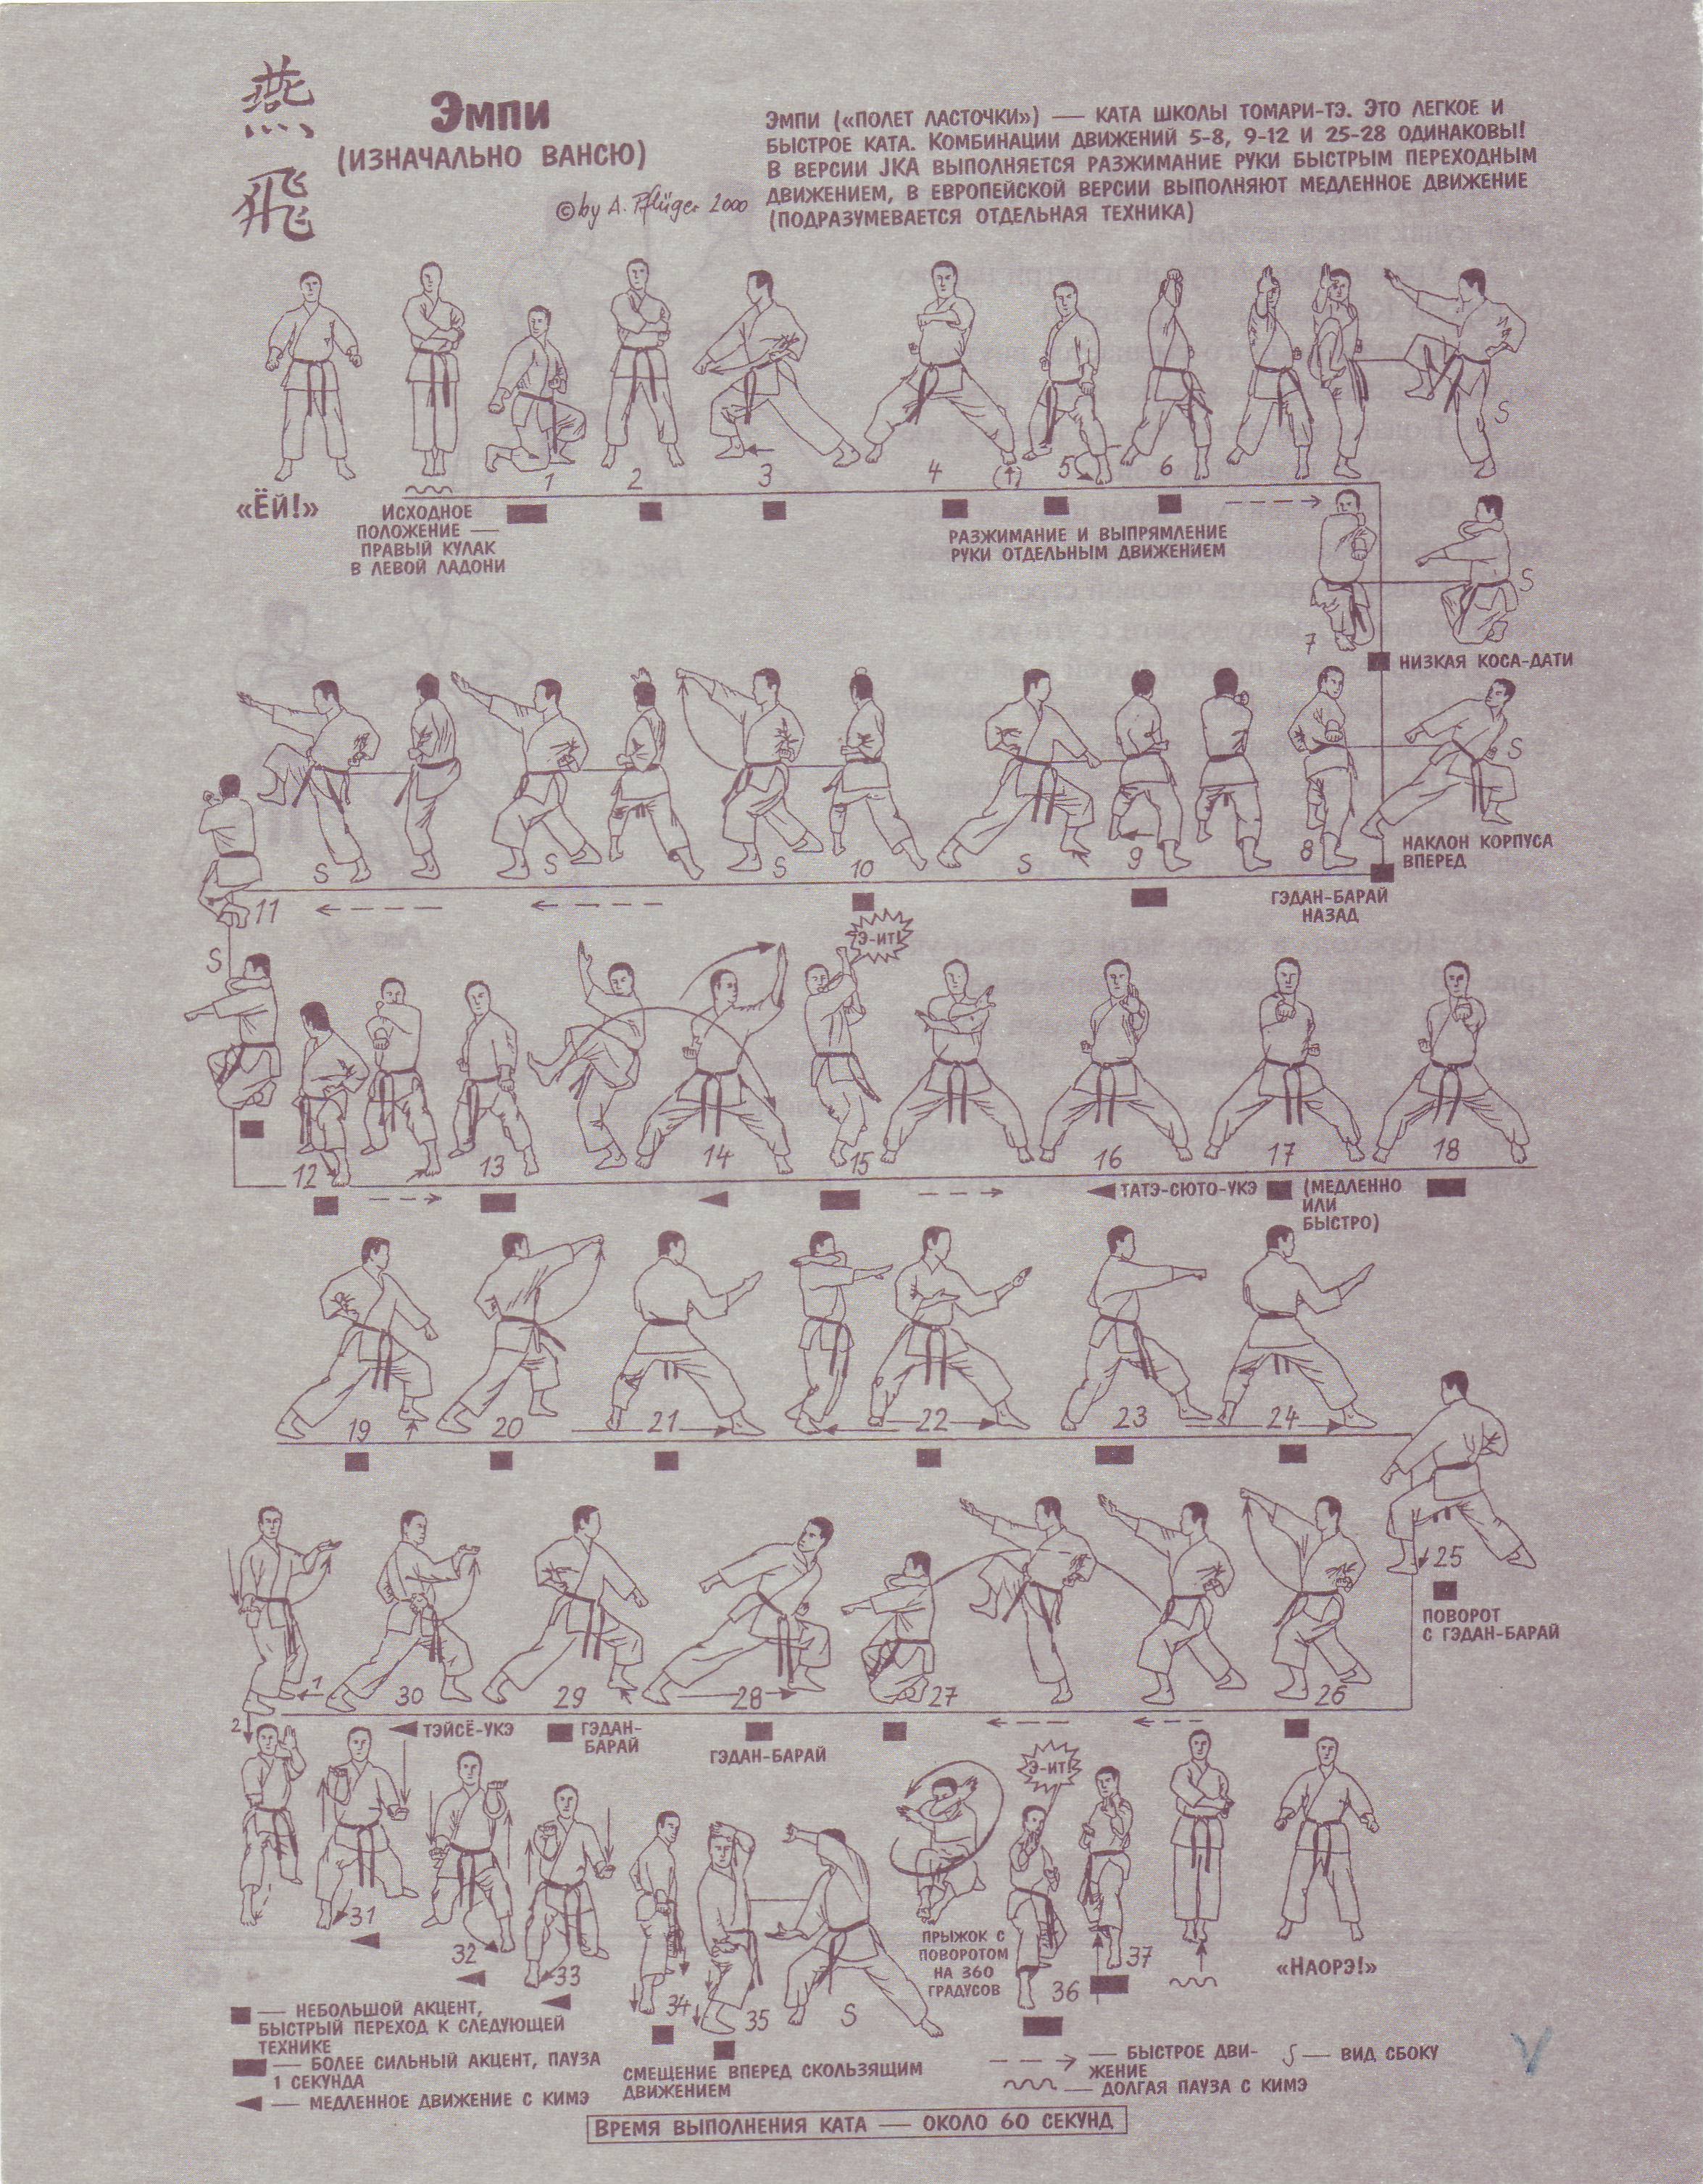 燕
飛
Эмпи
(изначально Вансю)
©by A. Pflüger 2000
Эмпи («полет ласточки») — ката школы Томари-тэ. Это легкое и
быстрое ката. Комбинации движений 5-8, 9-12 и 25-28 одинаковы!
В версии JKA выполняется разжимание руки быстрым переходным
движением, в европейской версии выполняют медленное движение
(подразумевается отдельная техника)
S
1
2
3
4
(↑)
5
6
«Ёй!»
Исходное
положение —
правый кулак
в левой ладони
Разжимание и выпрямление
руки отдельным движением
S
7
Низкая коса-дати
S
S
S
S
10
S
9
8
Наклон корпуса
вперед
11
Гэдан-барай
назад
Э-ит!
S
12
13
14
15
16
17
18
Татэ-сюто-укэ
(медленно
или
быстро)
19
20
21
22
23
24
25
Поворот
с гэдан-барай
1
30
29
28
27
26
2
Тэйсё-укэ
Гэдан-
барай
Гэдан-барай
Э-ит!
31
32
33
34
35
S
Прыжок с
поворотом
на 360
градусов
36
37
«Наорэ!»
— небольшой акцент,
быстрый переход к следующей
технике
— более сильный акцент, пауза
1 секунда
— медленное движение с кимэ
Смещение вперед скользящим
движением
— быстрое дви-
жение
S — вид сбоку
— долгая пауза с кимэ
Время выполнения ката — около 60 секунд